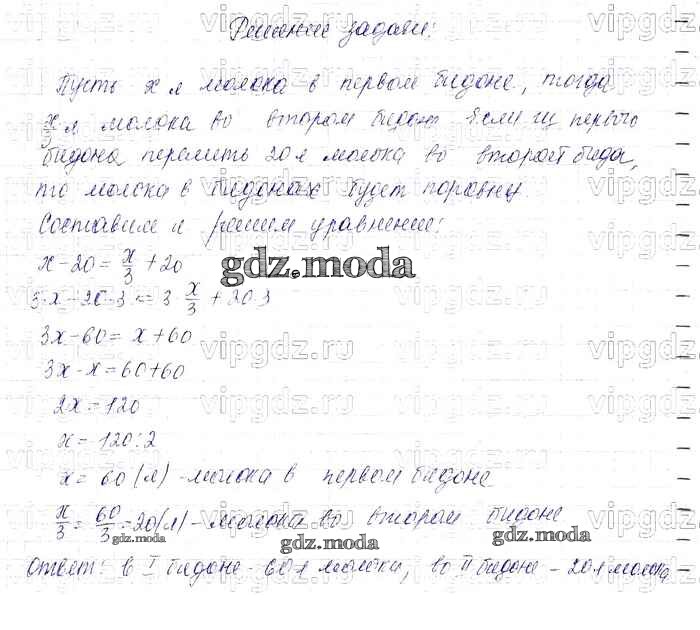 Решение задачи:
Пусть x л молока в первом бидоне, тогда
x/3 л молока во втором бидоне. Если из первого
бидона перелить 20 л молока во второй бидон,
то молока в бидонах будет поровну.
Составим и решим уравнение:
x - 20 = x/3 + 20
3·x - 20·3 = 3·x/3 + 20·3
3x - 60 = x + 60
3x - x = 60 + 60
2x = 120
x = 120 : 2
x = 60 (л) - молока в первом бидоне
x/3 = 60/3 = 20 (л) - молока во втором бидоне
Ответ: в I бидоне - 60 л молока, во II бидоне - 20 л молока
gdz.moda
gdz.moda
gdz.moda
gdz.moda
vipgdz.ru